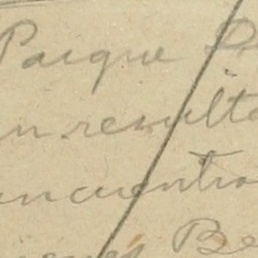 Parque D
un resulta
encuentra
Be